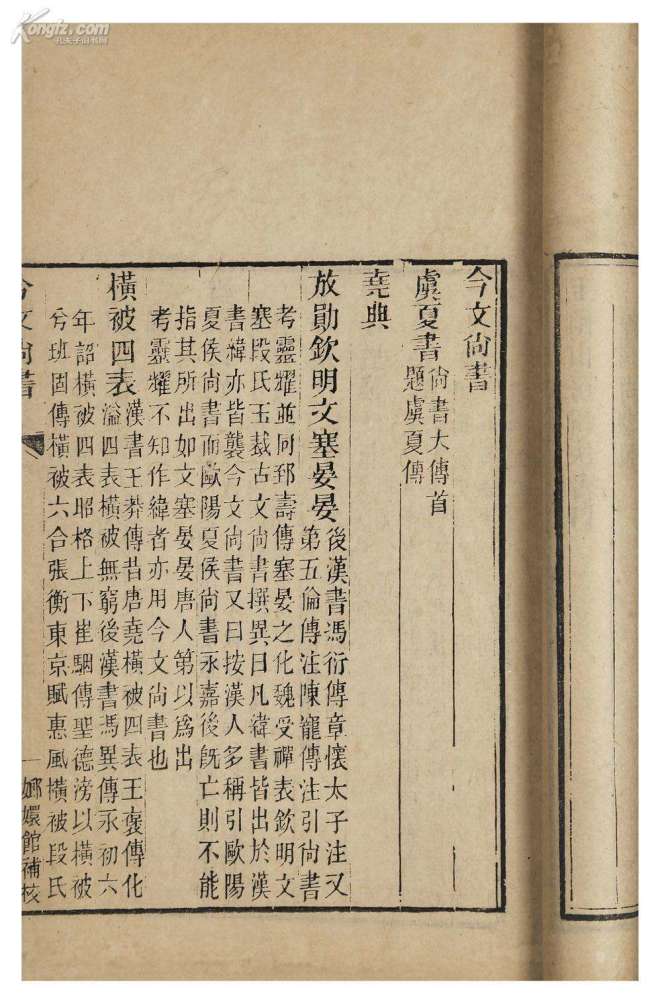 今文尚書
虞夏書尚書大傳首
題虞夏傳
堯典
放勛欽明文塞晏晏後漢書馮衍傳章懷太子注又
第五倫傳注陳寵傳注引尚書
考靈耀並同郅壽傳塞晏之化魏受禪表欽明文
塞段氏玉裁古文尚書撰異曰凡緯書皆出於漢
書緯亦皆襲今文尚書又曰按漢人多稱引歐陽
夏侯尚書而歐陽夏侯尚書永嘉後旣亡則不能
指其所出如文塞晏晏唐人第以爲出
考靈耀不知作緯者亦用今文尚書也
橫被四表漢書王莽傳昔唐堯橫被四表王褒傳化
溢四表橫被無窮後漢書馮異傳永初六
年詔橫被四表昭格上下崔駰傳聖德滂以橫被
兮班固傳橫被六合張衡東京賦惠風橫被段氏
今文尚書
一
嫏嬛館補校
Kongfz.com
孔夫子旧书网